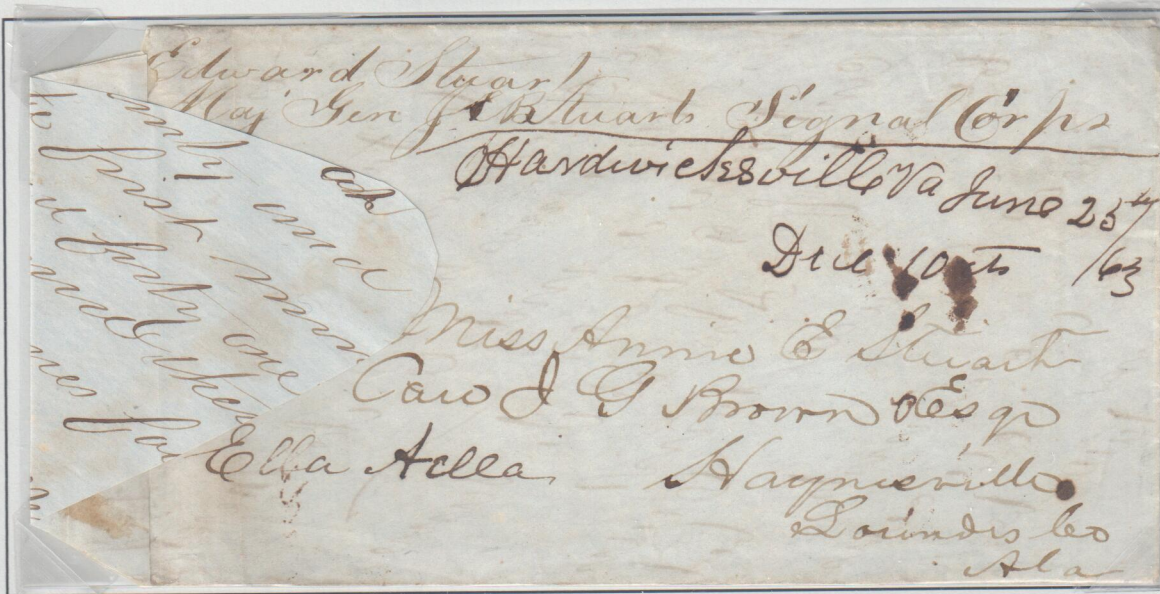 Edward Stuart
Maj Gen J E B Stuarts Signal Corps
Hardwicksville Va June 25th/63
Due 10cts
Miss Annie E Stuart
Care J G Brown Esqr
Ella Aella
Haynesville
Lowndes Co
Ala
and
first
forty one